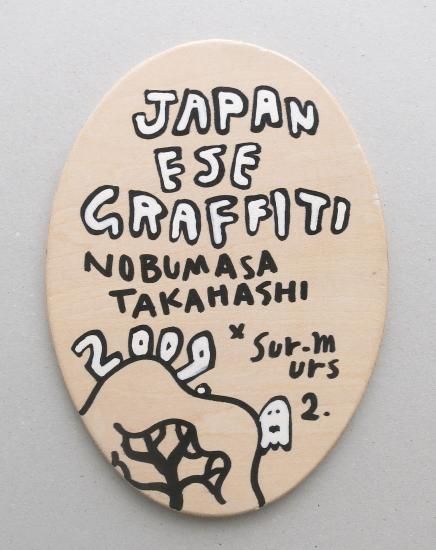 JAPAN
ESE
GRAFFITI
NOBUMASA
TAKAHASHI
2009. × Sur-m
urs
2.